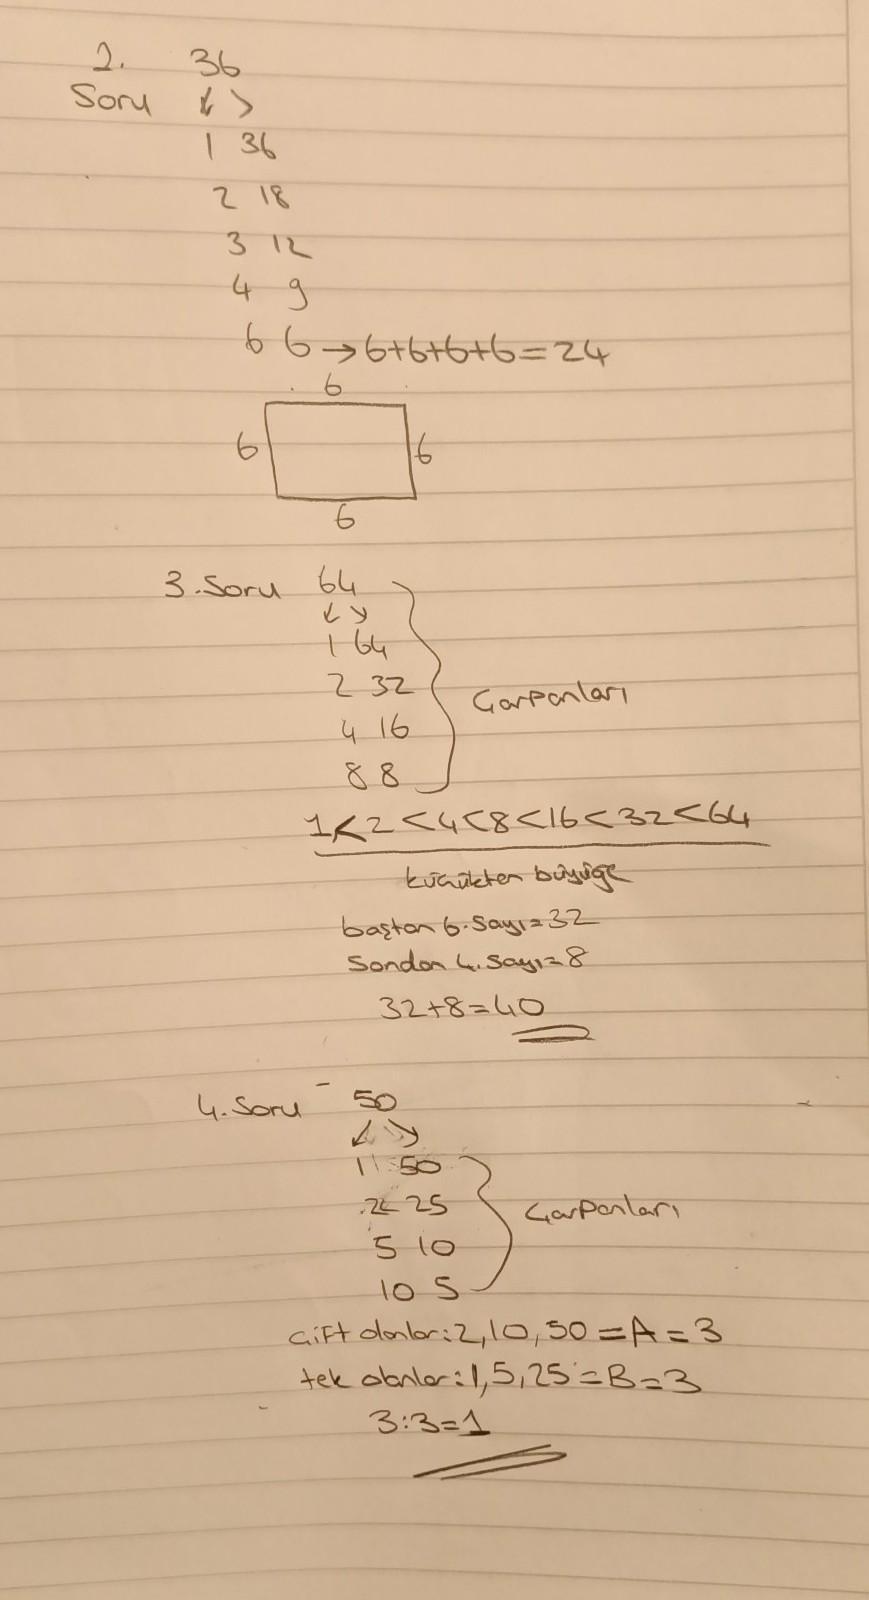 2. 36
Soru ↙ ↘
1 36
2 18
3 12
4 9
6 6 → 6+6+6+6=24
6
6 6
6
3.Soru 64
↙ ↘
1 64
2 32
Çarpanları
4 16
8 8
1<2<4<8<16<32<64
küçükten büyüğe
baştan 6.sayı=32
Sondan 4.sayı=8
32+8=40
4.Soru 50
↙ ↘
1 50
2 25
Çarpanları
5 10
10 5
Çift olanlar:2,10,50=A=3
tek olanlar:1,5,25=B=3
3:3=1